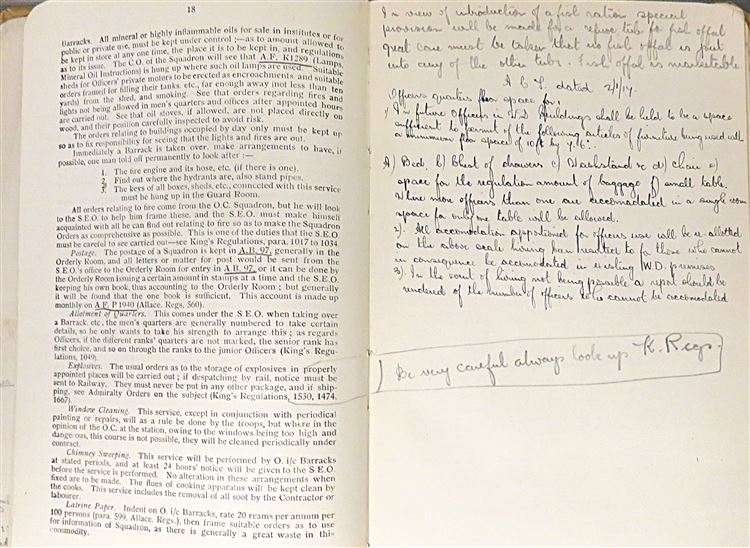 18
Barracks. All mineral or highly inflammable oils for sale in institutes or for
public or private use, must be kept under control ;—as to amount allowed to
be kept in store at any one time, the place it is to be kept in, and regulations
as to its issue. The C.O. of the Squadron will see that A.F. K1289 (Lamps,
Mineral Oil Instructions) is hung up where such oil lamps are used. Suitable
sheds for Officers' private motors to be erected as encroachments, and suitable
orders framed for filling their tanks, etc., far enough away (not less than ten
yards) from the shed, and smoking. See that orders regarding fires and
lights not being allowed in men's quarters and offices after appointed hours
are carried out. See that oil stoves, if allowed, are not placed directly on
wood, and their position carefully inspected to avoid risk.
The orders relating to buildings occupied by day only must be kept up
so as to fix responsibility for seeing that the lights and fires are out.
Immediately a Barrack is taken over, make arrangements to have, if
possible, one man told off permanently to look after :—
1. The fire engine and its hose, etc. (if there is one).
2. Find out where the hydrants are, also stand pipes.
3. The keys of all boxes, sheds, etc., connected with this service
must be hung up in the Guard Room.
All orders relating to fire come from the O.C. Squadron, but he will look
to the S.E.O. to help him frame these, and the S.E.O. must make himself
acquainted with all he can find out relating to fire so as to make the Squadron
Orders as comprehensive as possible. This is one of the duties that the S.E.O.
must be careful to see carried out—see King's Regulations, para. 1017 to 1034
Postage. The postage of a Squadron is kept in A.B. 97, generally in the
Orderly Room, and all letters or matter for post would be sent from the
S.E.O.'s office to the Orderly Room for entry in A.B. 97, or it can be done by
the Orderly Room issuing a certain amount in stamps at a time and the S.E.O.
keeping his own book, thus accounting to the Orderly Room ; but generally
it will be found that the one book is sufficient. This account is made up
monthly on A.F. P1940 (Allace. Regs, 560).
Allotment of Quarters. This comes under the S.E.O. when taking over
a Barrack, etc., the men's quarters are generally numbered to take certain
details, so he only wants to take his strength to arrange this ; as regards
Officers, if the different ranks' quarters are not marked, the senior rank has
first choice, and so on through the ranks to the junior Officers (King's Regu-
lations, 1049).
Explosives. The usual orders as to the storage of explosives in properly
appointed places will be carried out ; if despatching by rail, notice must be
sent to Railway. They must never be put in any other package, and if ship-
ping, see Admiralty Orders on the subject (King's Regulations, 1530, 1474,
1667).
Window Cleaning. This service, except in conjunction with periodical
painting or repairs, will as a rule be done by the troops, but where in the
opinion of the O.C. at the station, owing to the windows being too high and
dangerous, this course is not possible, they will be cleaned periodically under
contract.
Chimney Sweeping. This service will be performed by O. i/c Barracks
at stated periods, and at least 24 hours' notice will be given to the S.E.O.
before the service is performed. No alteration in these arrangements when
fixed are to be made. The flues of cooking apparatus will be kept clean by
the cooks. This service includes the removal of all soot by the Contractor or
labourer.
Latrine Paper. Indent on O. i/c Barracks, rate 20 reams per annum per
100 persons (para. 599, Allace. Regs.), then frame suitable orders as to use
for information of Squadron, as there is generally a great waste in this
commodity.
In view of introduction of a fish ration special
provision will be made for a refuse tub for fish offal
great care must be taken that no fish offal is put
into any of the other tubs. Fish offal is
dated 2/1/17
Officers quarters floor space for;
1) In future Officers in W.D Buildings shall be held to be a space
sufficient to permit of the following articles of furniture being used with
a minimum floor space of 10ft by 7.6".
A) Bed. b) Chest of drawers c) Washstand d) chair e)
space for the regulation amount of baggage f) small table.
Where more officers than one are accomodated in a single room
space for only one table will be allowed.
2). All accomodation apportioned for officers use will be re allotted
on the above scale hiring being resorted to for those who cannot
in consequence be accomodated in existing W.D. premises
3). In the event of hiring not being possible a report should be
rendered of the number of officers who cannot be accomodated
Be very careful always look up K. Regs.